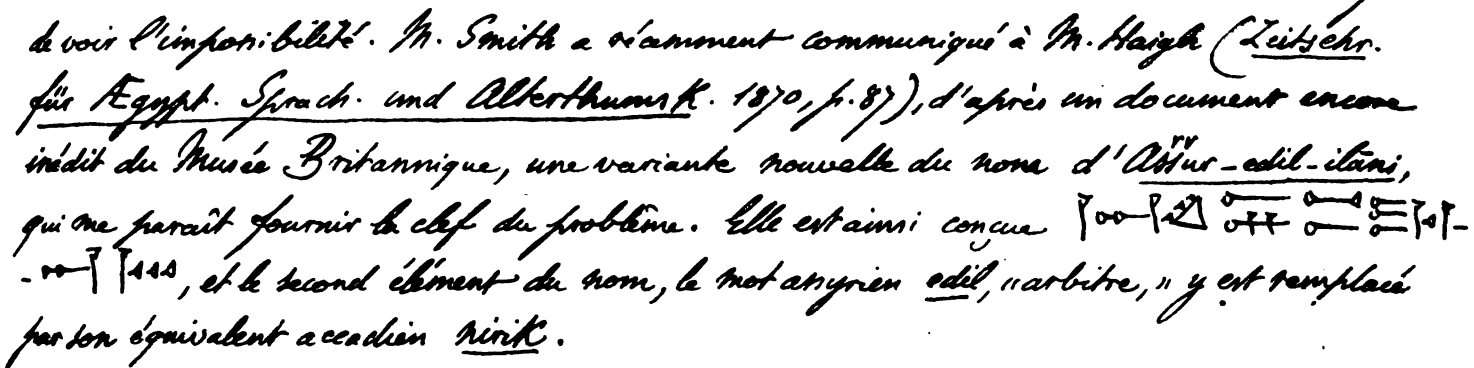 de voir l'impossibilité. M. Smith a récemment communiqué à M. Haigh (Zeitschr.
für Ægypt. Sprach. und Alterthumsk. 1870, p. 87), d'après un document encore
inédit du Musée Britannique, une variante nouvelle du nom d'Aššur-edil-ilāni,
qui me paraît fournir la clef du problême. Elle est ainsi conçue
, et le second élément du nom, le mot assyrien edil, "arbitre," y est remplacé
par son équivalent accadien nirik.